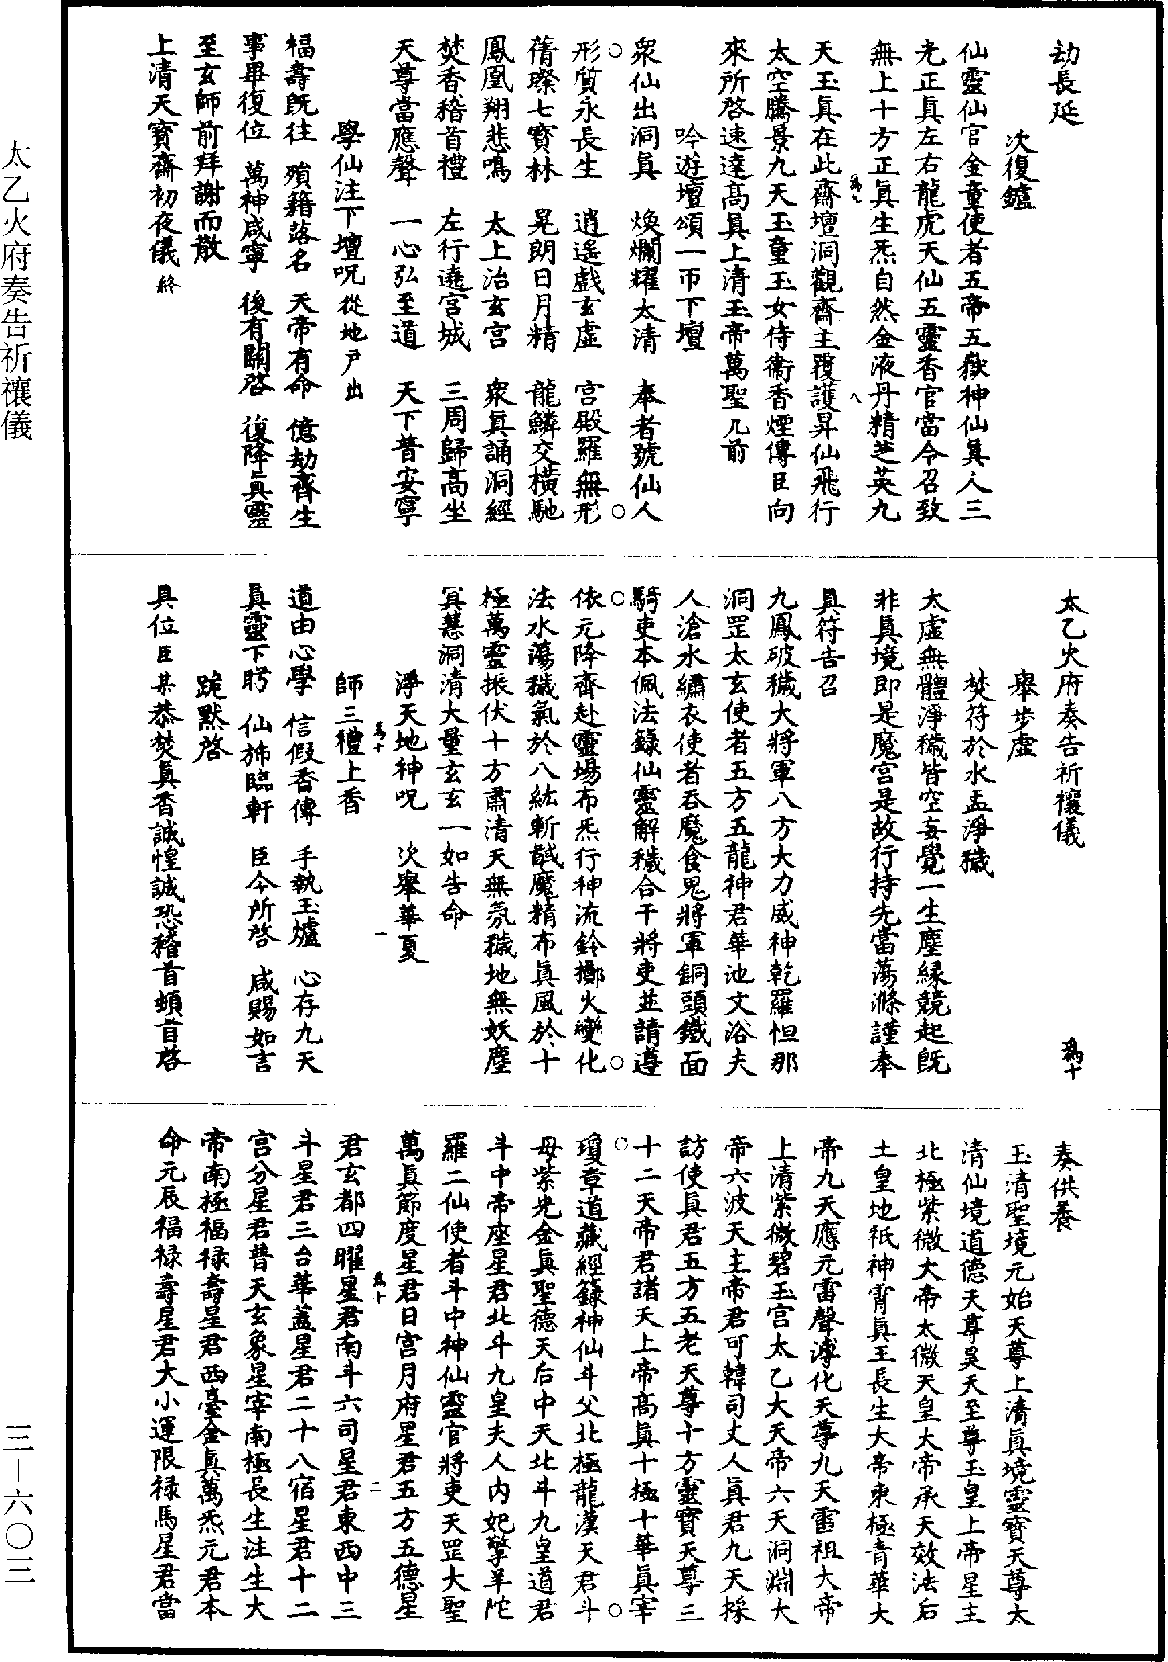 太乙火府奏告祈禳儀
三－六〇三
劫長延
次復鑪
仙靈仙官金童使者五帝五嶽神仙眞人三
光正眞左右龍虎天仙五靈香官當今召致
無上十方正眞生炁自然金液丹精芝英九
天玉眞在此齋壇洞觀齋主覆護昇仙飛行
太空騰景九天玉童玉女侍衞香煙傳臣向
來所啓速達高眞上清玉帝萬聖几前
吟遊壇頌一帀下壇
衆仙出洞眞　煥爛耀太清　奉者號仙人
形質永長生　逍遙戲玄虛　宮殿羅無形
蒨璨七寶林　晃朗日月精　龍鱗交橫馳
鳳凰翔悲鳴　太上治玄宮　衆眞誦洞經
焚香稽首禮　左行遶宮城　三周歸高坐
天尊當應聲　一心弘至道　天下普安寧
學仙注下壇呪從地戸出
福壽旣往　殞籍落名　天帝有命　億劫齊生
事畢復位　萬神咸寧　後有關啓　復降眞靈
至玄師前拜謝而散
上清天寶齋初夜儀終
太乙火府奏告祈禳儀　爲十
舉步虛
焚符於水盂淨穢
太虛無體淨穢皆空妄覺一生塵緣競起旣
非眞境即是魔宮是故行持先當蕩滌謹奉
眞符告召
九鳳破穢大將軍八方大力威神乾羅怛那
洞罡太玄使者五方五龍神君華池丈浴夫
人滄水繡衣使者吞魔食鬼將軍銅頭鐵面
騎吏本佩法籙仙靈解穢合干將吏並請遵
依元降齊赴靈場布炁行神流鈴擲火變化
法水蕩穢氣於八紘斬馘魔精布眞風於十
極萬靈振伏十方肅清天無氛穢地無妖塵
冥慧洞清大量玄玄一如告命
淨天地神呪　次舉華夏
師三禮上香
道由心學　信假香傳　手執玉爐　心存九天
眞靈下盻　仙旆臨軒　臣今所啓　咸賜如言
跪默啓
具位臣某恭焚眞香誠惶誠恐稽首頓首啓
奏供養
玉清聖境元始天尊上清眞境靈寶天尊太
清仙境道德天尊昊天至尊玉皇上帝星主
北極紫微大帝太微天皇大帝承天效法后
土皇地祇神霄眞王長生大帝東極青華大
帝九天應元雷聲溥化天尊九天雷祖大帝
上清紫微碧玉宮太乙大天帝六天洞淵大
帝六波天主帝君可韓司丈人眞君九天採
訪使眞君五方五老天尊十方靈寶天尊三
十二天帝君諸天上帝高眞十極十華眞宰
瓊章道藏經籙神仙斗父北極龍漢天君斗
母紫光金眞聖德天后中天北斗九皇道君
斗中帝座星君北斗九皇夫人內妃擎羊陀
羅二仙使者斗中神仙靈官將吏天罡大聖
萬眞節度星君日宮月府星君五方五德星
君玄都四曜星君南斗六司星君東西中三
斗星君三台華蓋星君二十八宿星君十二
宮分星君普天玄象星宰南極長生注生大
帝南極福祿壽星君西臺金眞萬炁元君本
命元辰福祿壽星君大小運限祿馬星君當